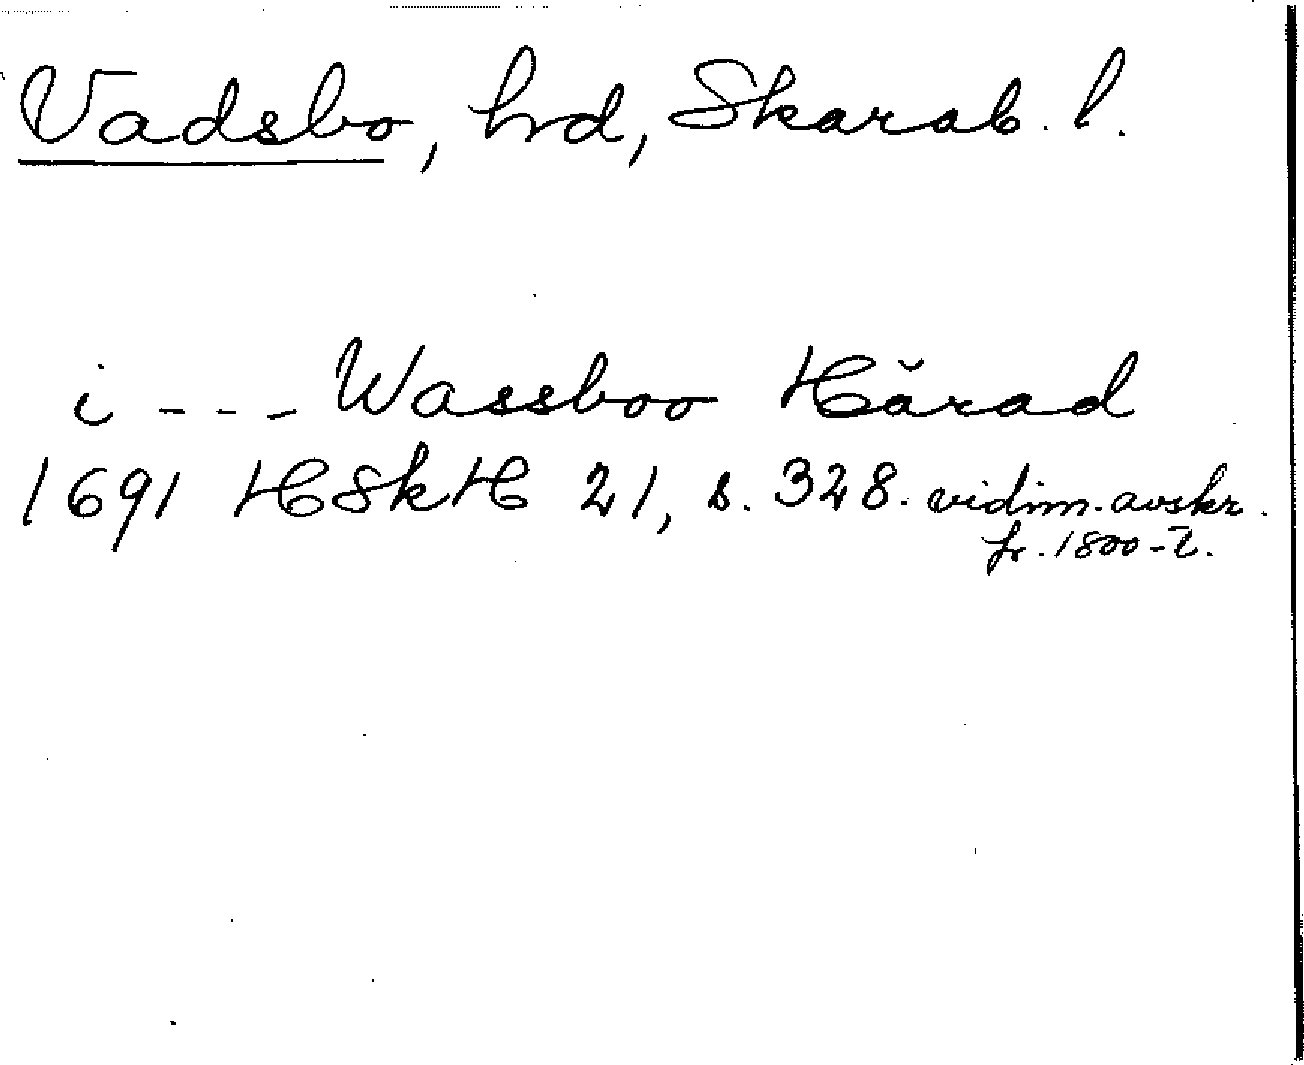 Vadsbo, hrd, Skarab. l.
i - - - Wassboo Hărad
1691 HSkH 21, s. 328. vidim. avskr.
fr. 1800-t.